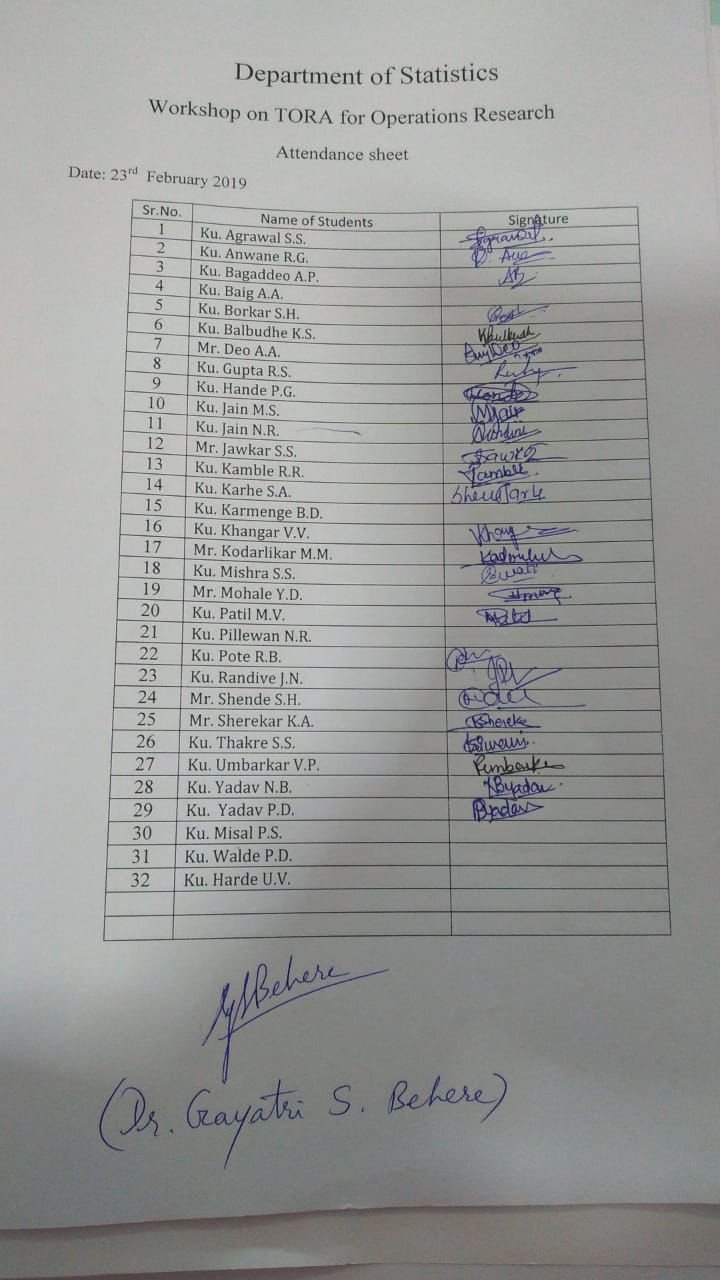 Department of Statistics
Workshop on TORA for Operations Research
Attendance sheet
Date: 23rd February 2019
Sr.No. Name of Students Signature
1 Ku. Agrawal S.S.
2 Ku. Anwane R.G.
3 Ku. Bagaddeo A.P. AB
4 Ku. Baig A.A.
5 Ku. Borkar S.H.
6 Ku. Balbudhe K.S.
7 Mr. Deo A.A.
8 Ku. Gupta R.S.
9 Ku. Hande P.G.
10 Ku. Jain M.S.
11 Ku. Jain N.R.
12 Mr. Jawkar S.S.
13 Ku. Kamble R.R.
14 Ku. Karhe S.A.
15 Ku. Karmenge B.D.
16 Ku. Khangar V.V.
17 Mr. Kodarlikar M.M.
18 Ku. Mishra S.S.
19 Mr. Mohale Y.D.
20 Ku. Patil M.V.
21 Ku. Pillewan N.R.
22 Ku. Pote R.B.
23 Ku. Randive J.N.
24 Mr. Shende S.H.
25 Mr. Sherekar K.A.
26 Ku. Thakre S.S.
27 Ku. Umbarkar V.P.
28 Ku. Yadav N.B. NByadav
29 Ku. Yadav P.D. Pyadav
30 Ku. Misal P.S.
31 Ku. Walde P.D.
32 Ku. Harde U.V.
GSBehere
(Dr. Gayatri S. Behere)